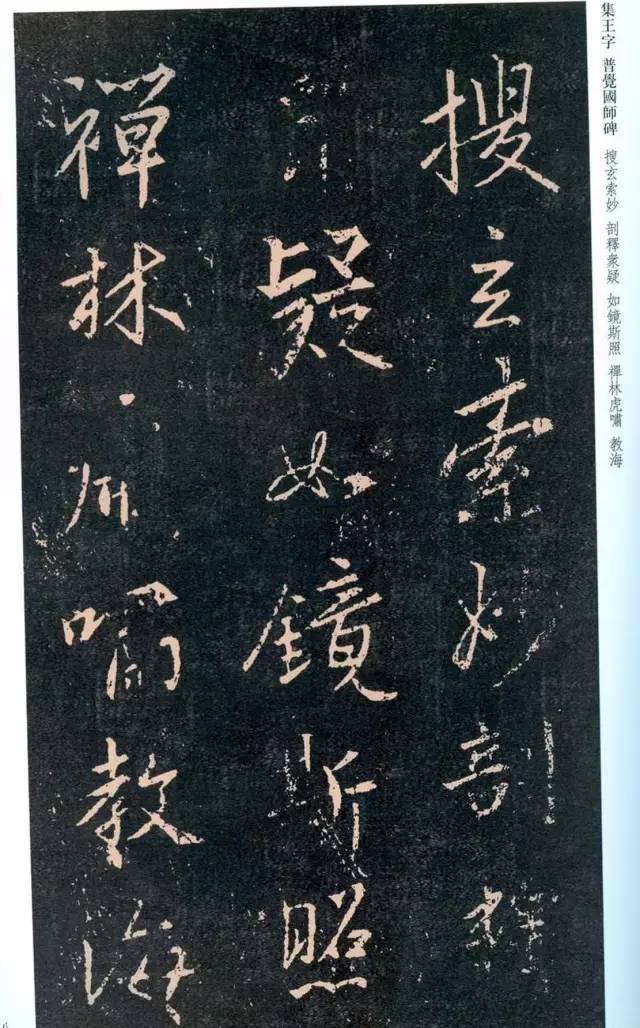 集王字 普覺國師碑 搜玄索妙 剖釋衆疑 如鏡斯照 禪林虎嘯 教海
搜玄索妙剖釋
衆疑如鏡斯照
禪林虎嘯教海
八